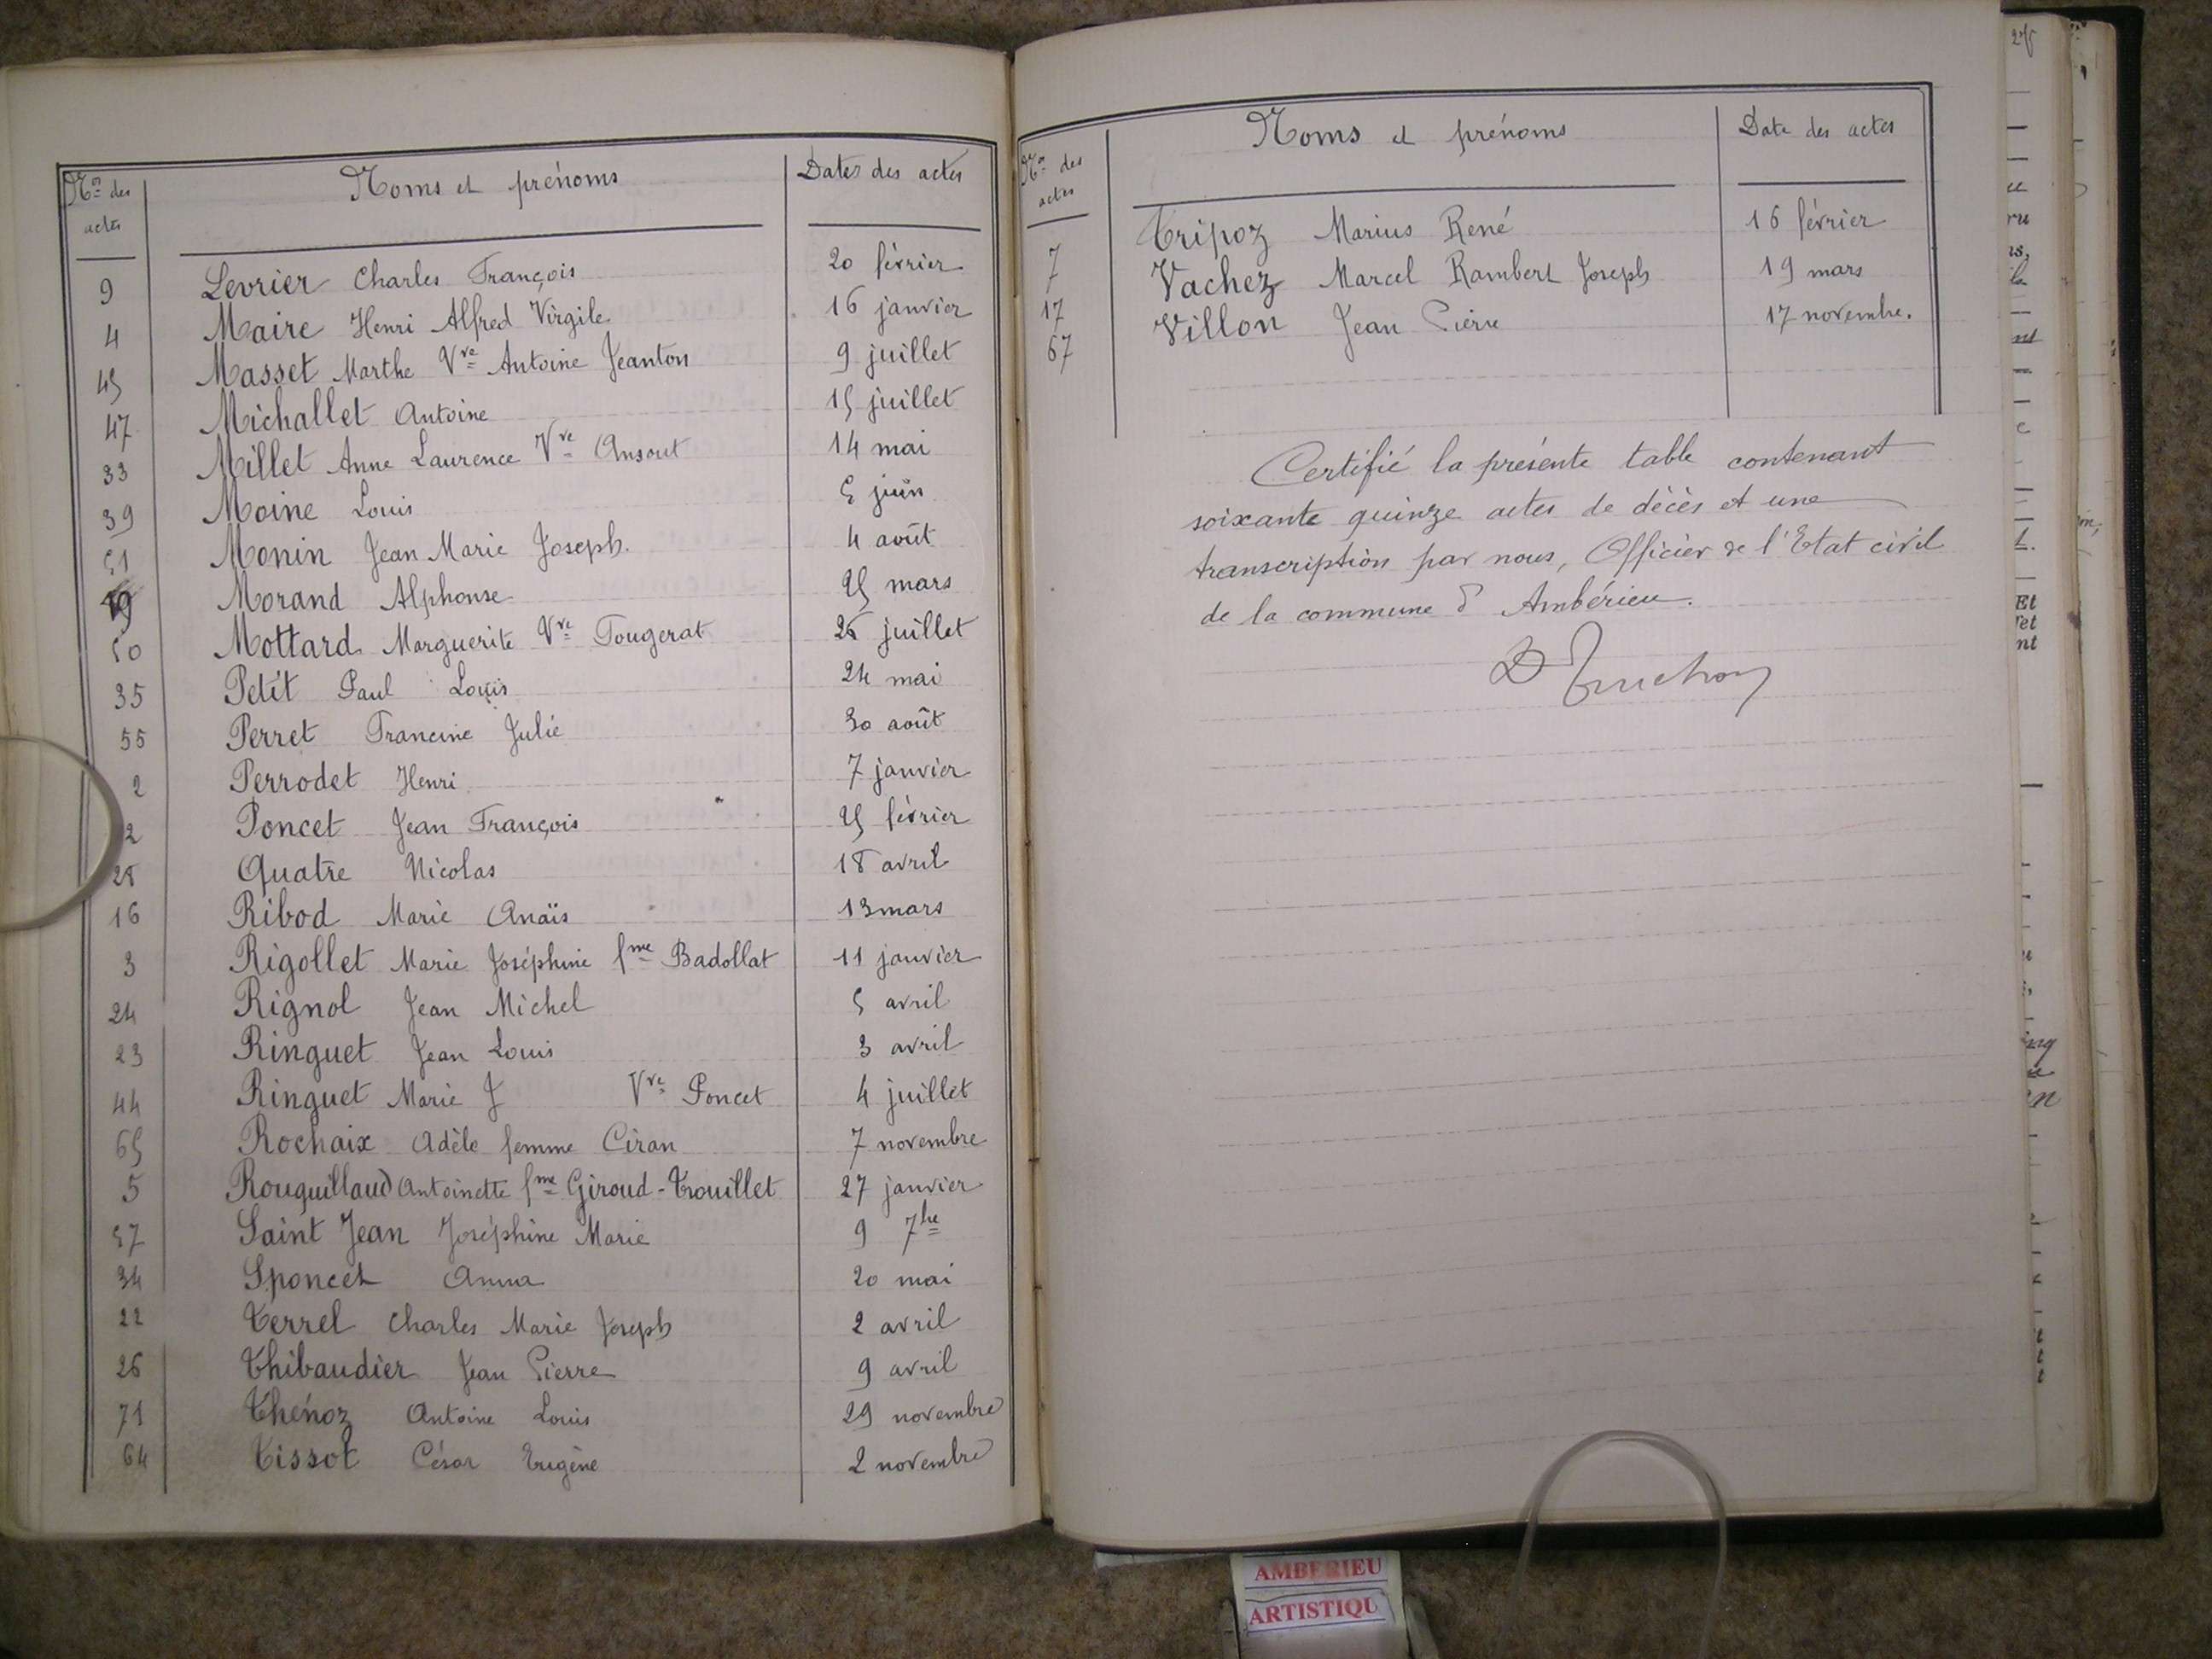 Nos des actes Noms et prénoms Dates des actes
9 Levrier Charles François 20 février
4 Maire Henri Alfred Virgile 16 janvier
45 Masset Marthe Vve Antoine Jeanton 9 juillet
47 Michallet Antoine 15 juillet
33 Millet Anne Laurence Vve Ansout 14 mai
39 Moine Louis 5 juin
51 Monin Jean Marie Joseph. 4 août
19 Morand Alphonse 25 mars
50 Mottard Marguerite Vve Fougerat 26 juillet
35 Petit Paul Louis 24 mai
55 Perret Francine Julie 30 août
2 Perrodet Henri 7 janvier
2 Poncet Jean François 25 février
28 Quatre Nicolas 18 avril
16 Ribod Marie Anaïs 13 mars
3 Rigollet Marie Joséphine fme Badollat 11 janvier
24 Rignol Jean Michel 5 avril
23 Ringuet Jean Louis 3 avril
44 Ringuet Marie J Vve Poncet 4 juillet
65 Rochaix Adèle femme Ciran 7 novembre
5 Rouquillaud Antoinette fme Giroud-Trouillet 27 janvier
57 Saint Jean Joséphine Marie 9 7bre
34 Sponcet Anna 20 mai
22 Terrel Charles Marie Joseph 2 avril
26 Thibaudier Jean Pierre 9 avril
71 Thénoz Antoine Louis 29 novembre
64 Tissot César Eugène 2 novembre
Nos des actes Noms et prénoms Date des actes
7 Tripoz Marius René 16 février
17 Vachez Marcel Rambert Joseph 19 mars
67 Villon Jean Pierre 17 novembre.
Certifié la présente table contenant
soixante quinze actes de décès et une
transcription par nous, Officier de l'Etat civil
de la commune d'Ambérieu.
AMBERIEU
ARTISTIQU